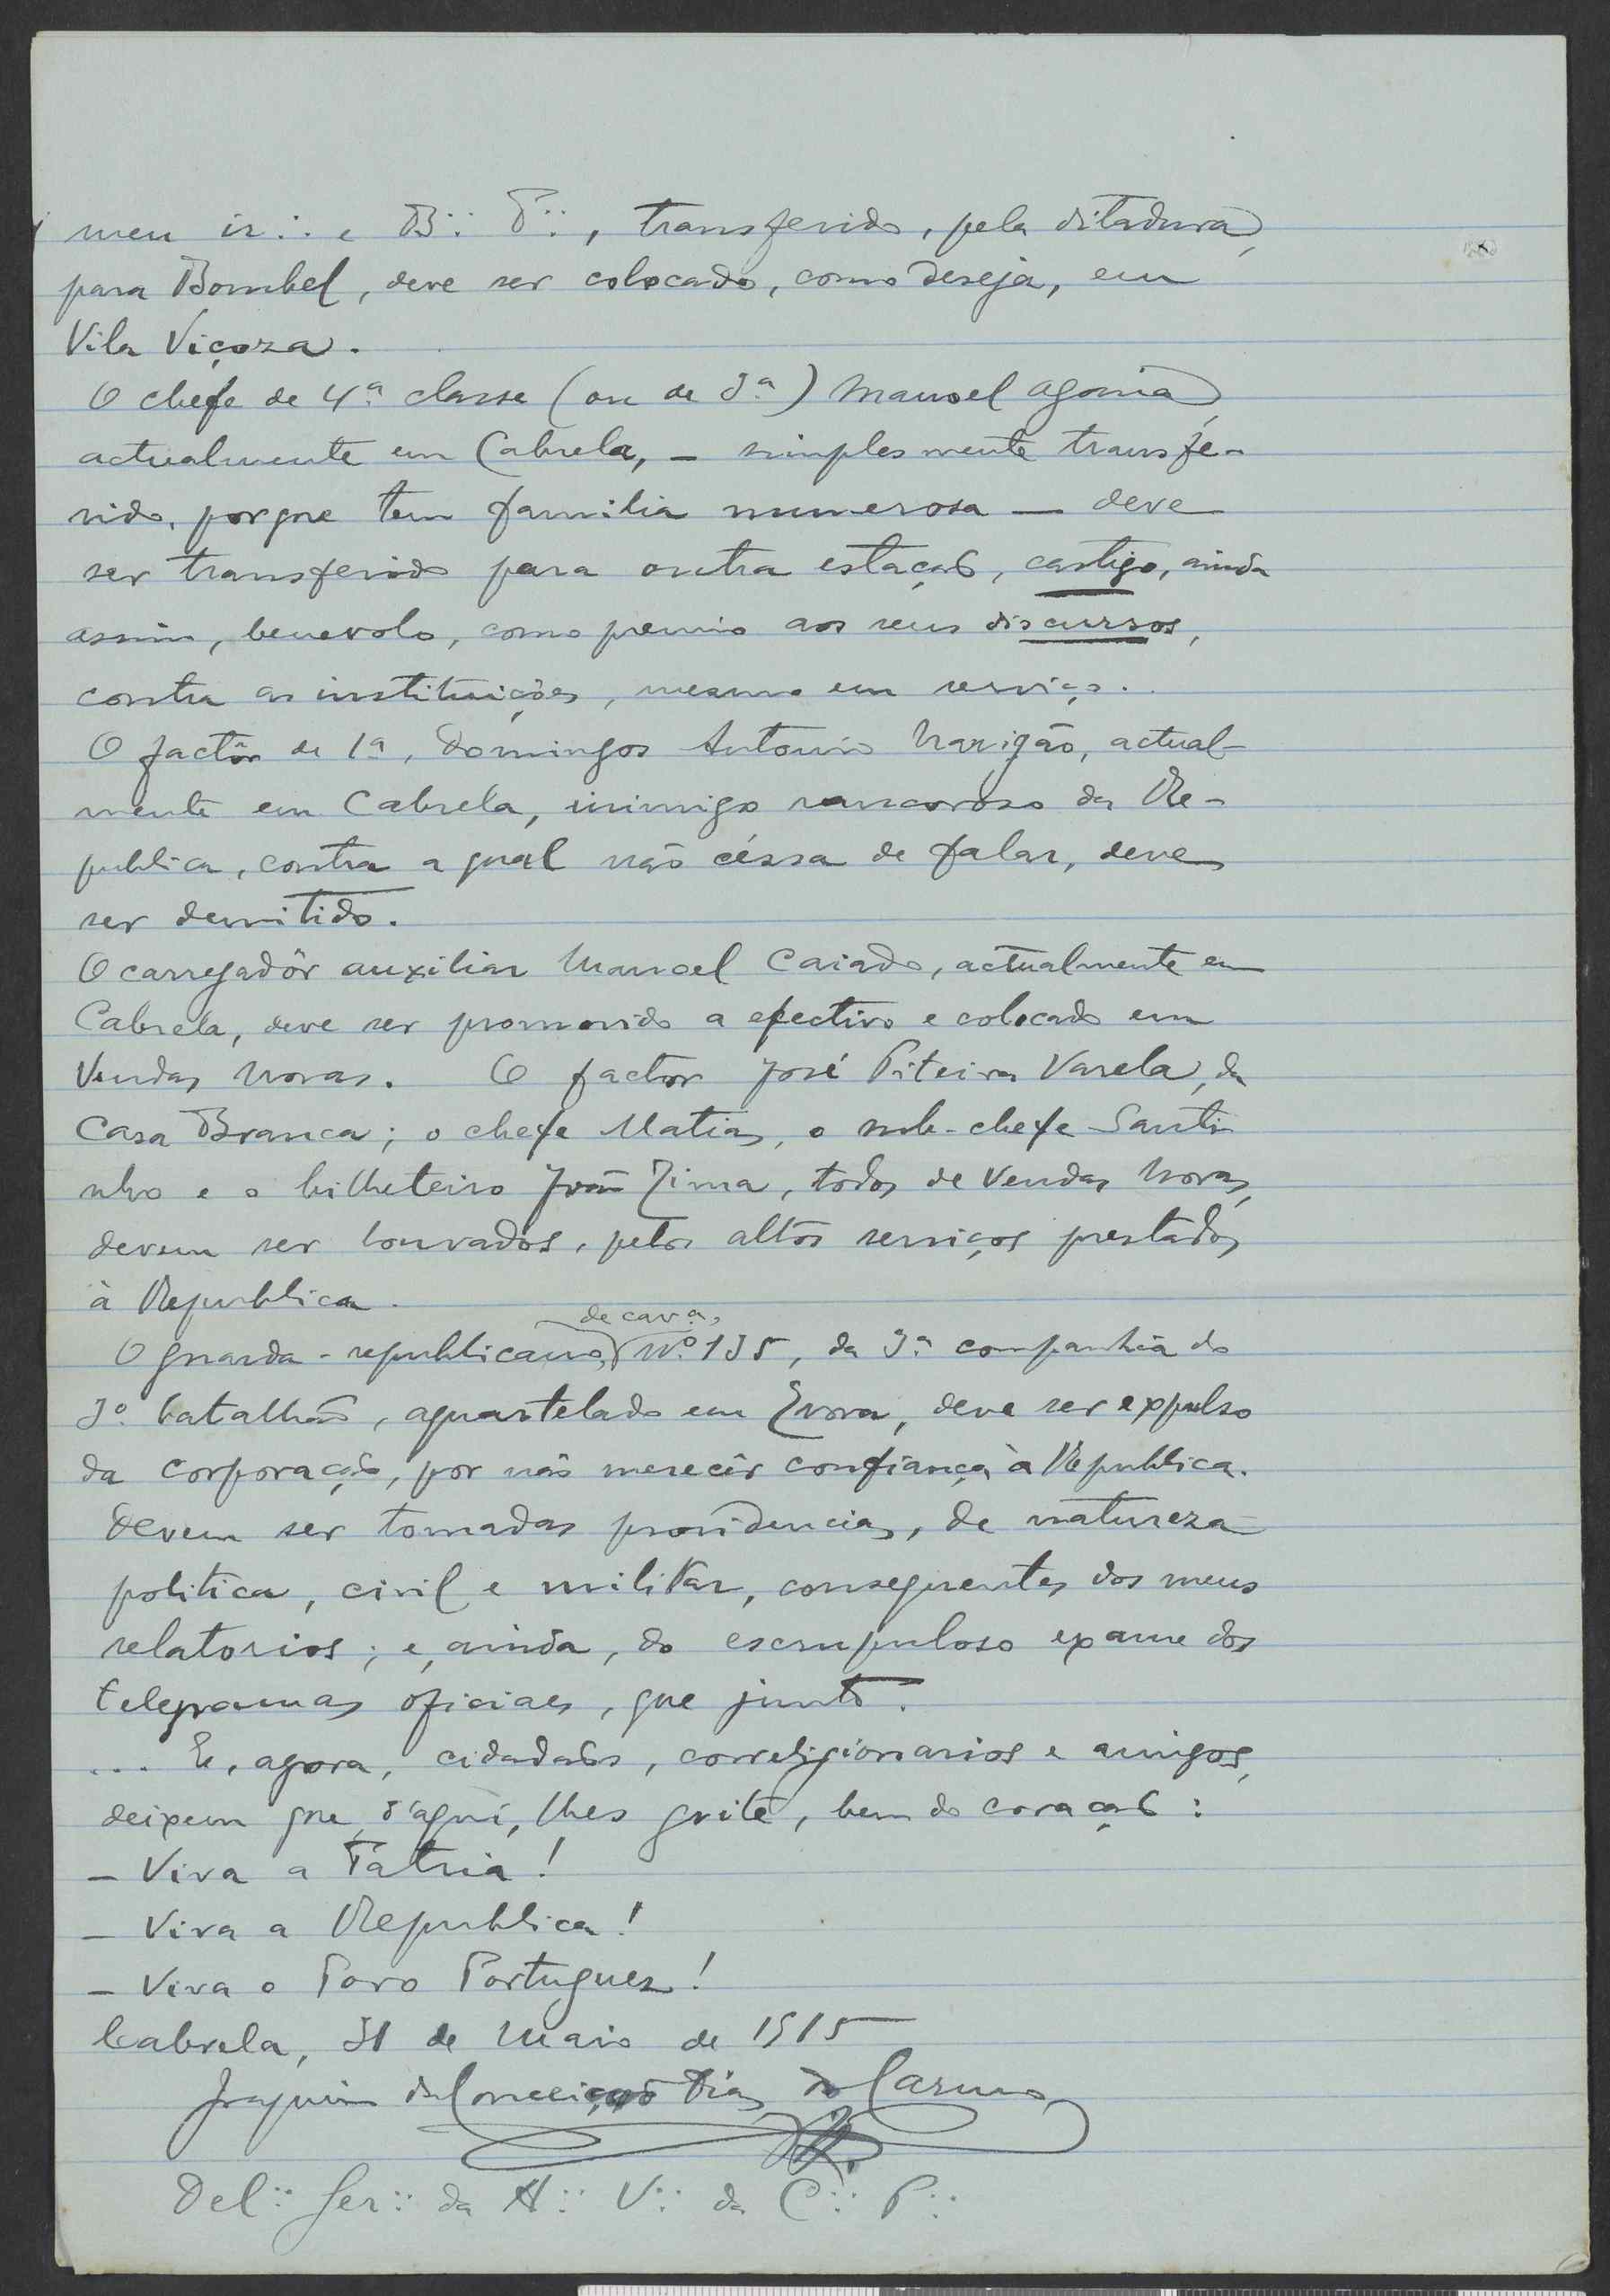 meu ir∴ e B∴ P∴, transferido, pela ditadura,
para Bombel, deve ser colocado, como deseja, em
Vila Viçoza.
O chefe de 4ª classe (ou de 3ª) Manoel Agonia,
actualmente em Cabrela, – simplesmente transfe-
rido, porque tem familia numerosa — deve
ser transferido para outra estação, castigo, ainda
assim, benevolo, como premio aos seus discursos,
contra as instituições, mesmo em serviço.
O factôr de 1ª, Domingos Antonio Narigão, actual-
mente em Cabrela, inimigo rancoroso da Re-
publica, contra a qual não céssa de falar, deve
ser demitido.
O carregadôr auxiliar Manoel Caiado, actualmente em
Cabrela, deve ser promovido a efectivo e colocado em
Vendas Novas. O factor José Piteira Varela, da
Casa Branca; o chefe Matias, o sub-chefe Santi-
nho e o bilheteiro João Zima, todos de Vendas Novas,
devem ser louvados, pelos altos serviços prestados
à Republica.
de cavª,
O guarda-republicano, Nº 135, da 3ª companhia do
3º batalhão, aquartelado em Evora, deve ser expulso
da corporação, por não merecêr confiança à Republica.
Devem ser tomadas providencias, de natureza
politica, civil e militar, consequentes dos meus
relatorios; e, ainda, do escrupuloso exame dos
telegramas oficiaes, que junto.
... E, agora, cidadãos, correligionarios e amigos,
deixem que, d'aqui, lhes grite, bem do coração:
– Viva a Patria!
– Viva a Republica!
– Viva o Povo Portuguez!
Cabrela, 31 de Maio de 1915
Joaquim da Conceição Dias do Carmo
Del∷ Ger∷ da A∷ V∷ da C∷ P∷